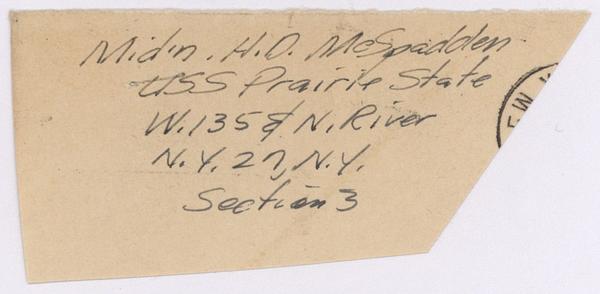 Mid'n. H.D. McSpadden
USS Prairie State
W. 135 & N. River
N.Y. 27, N.Y.
Section 3